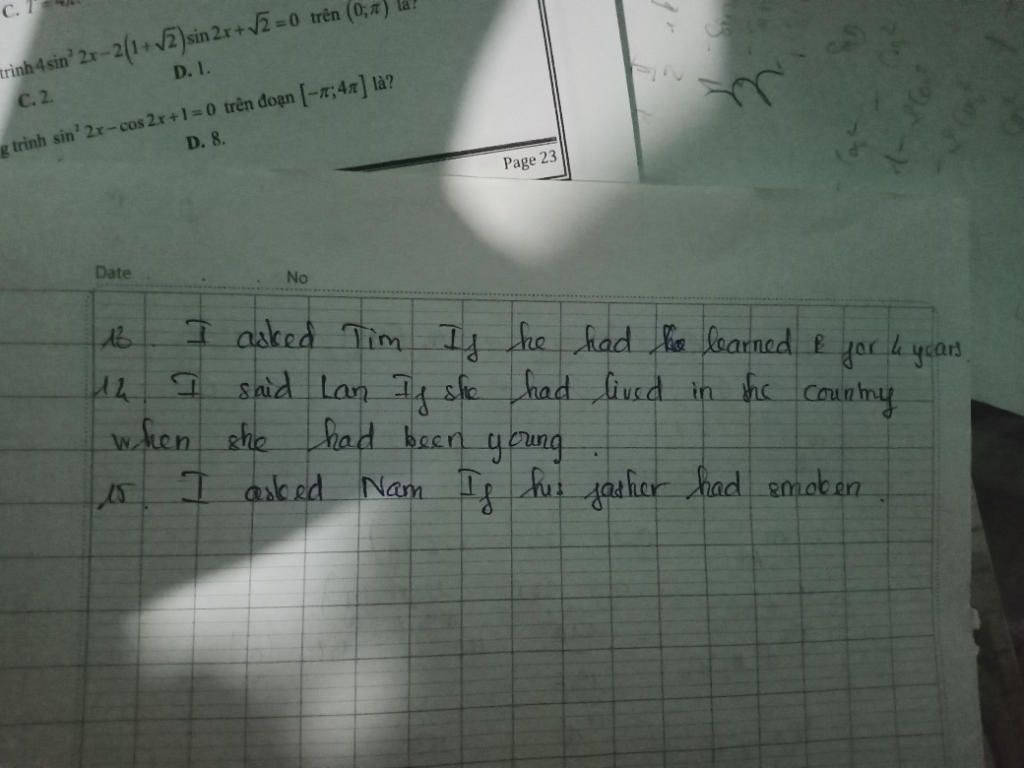 C.
trình 4 sin² 2x − 2(1 + √2) sin 2x + √2 = 0 trên (0; π) là?
C. 2. D. 1.
g trình sin² 2x − cos 2x + 1 = 0 trên đoạn [−π; 4π] là?
D. 8.
Page 23
Date No
13. I asked Tim If he had learned E for 4 years.
14. I said Lan If she had lived in the country
when she had been young.
15. I asked Nam If his father had smoken.